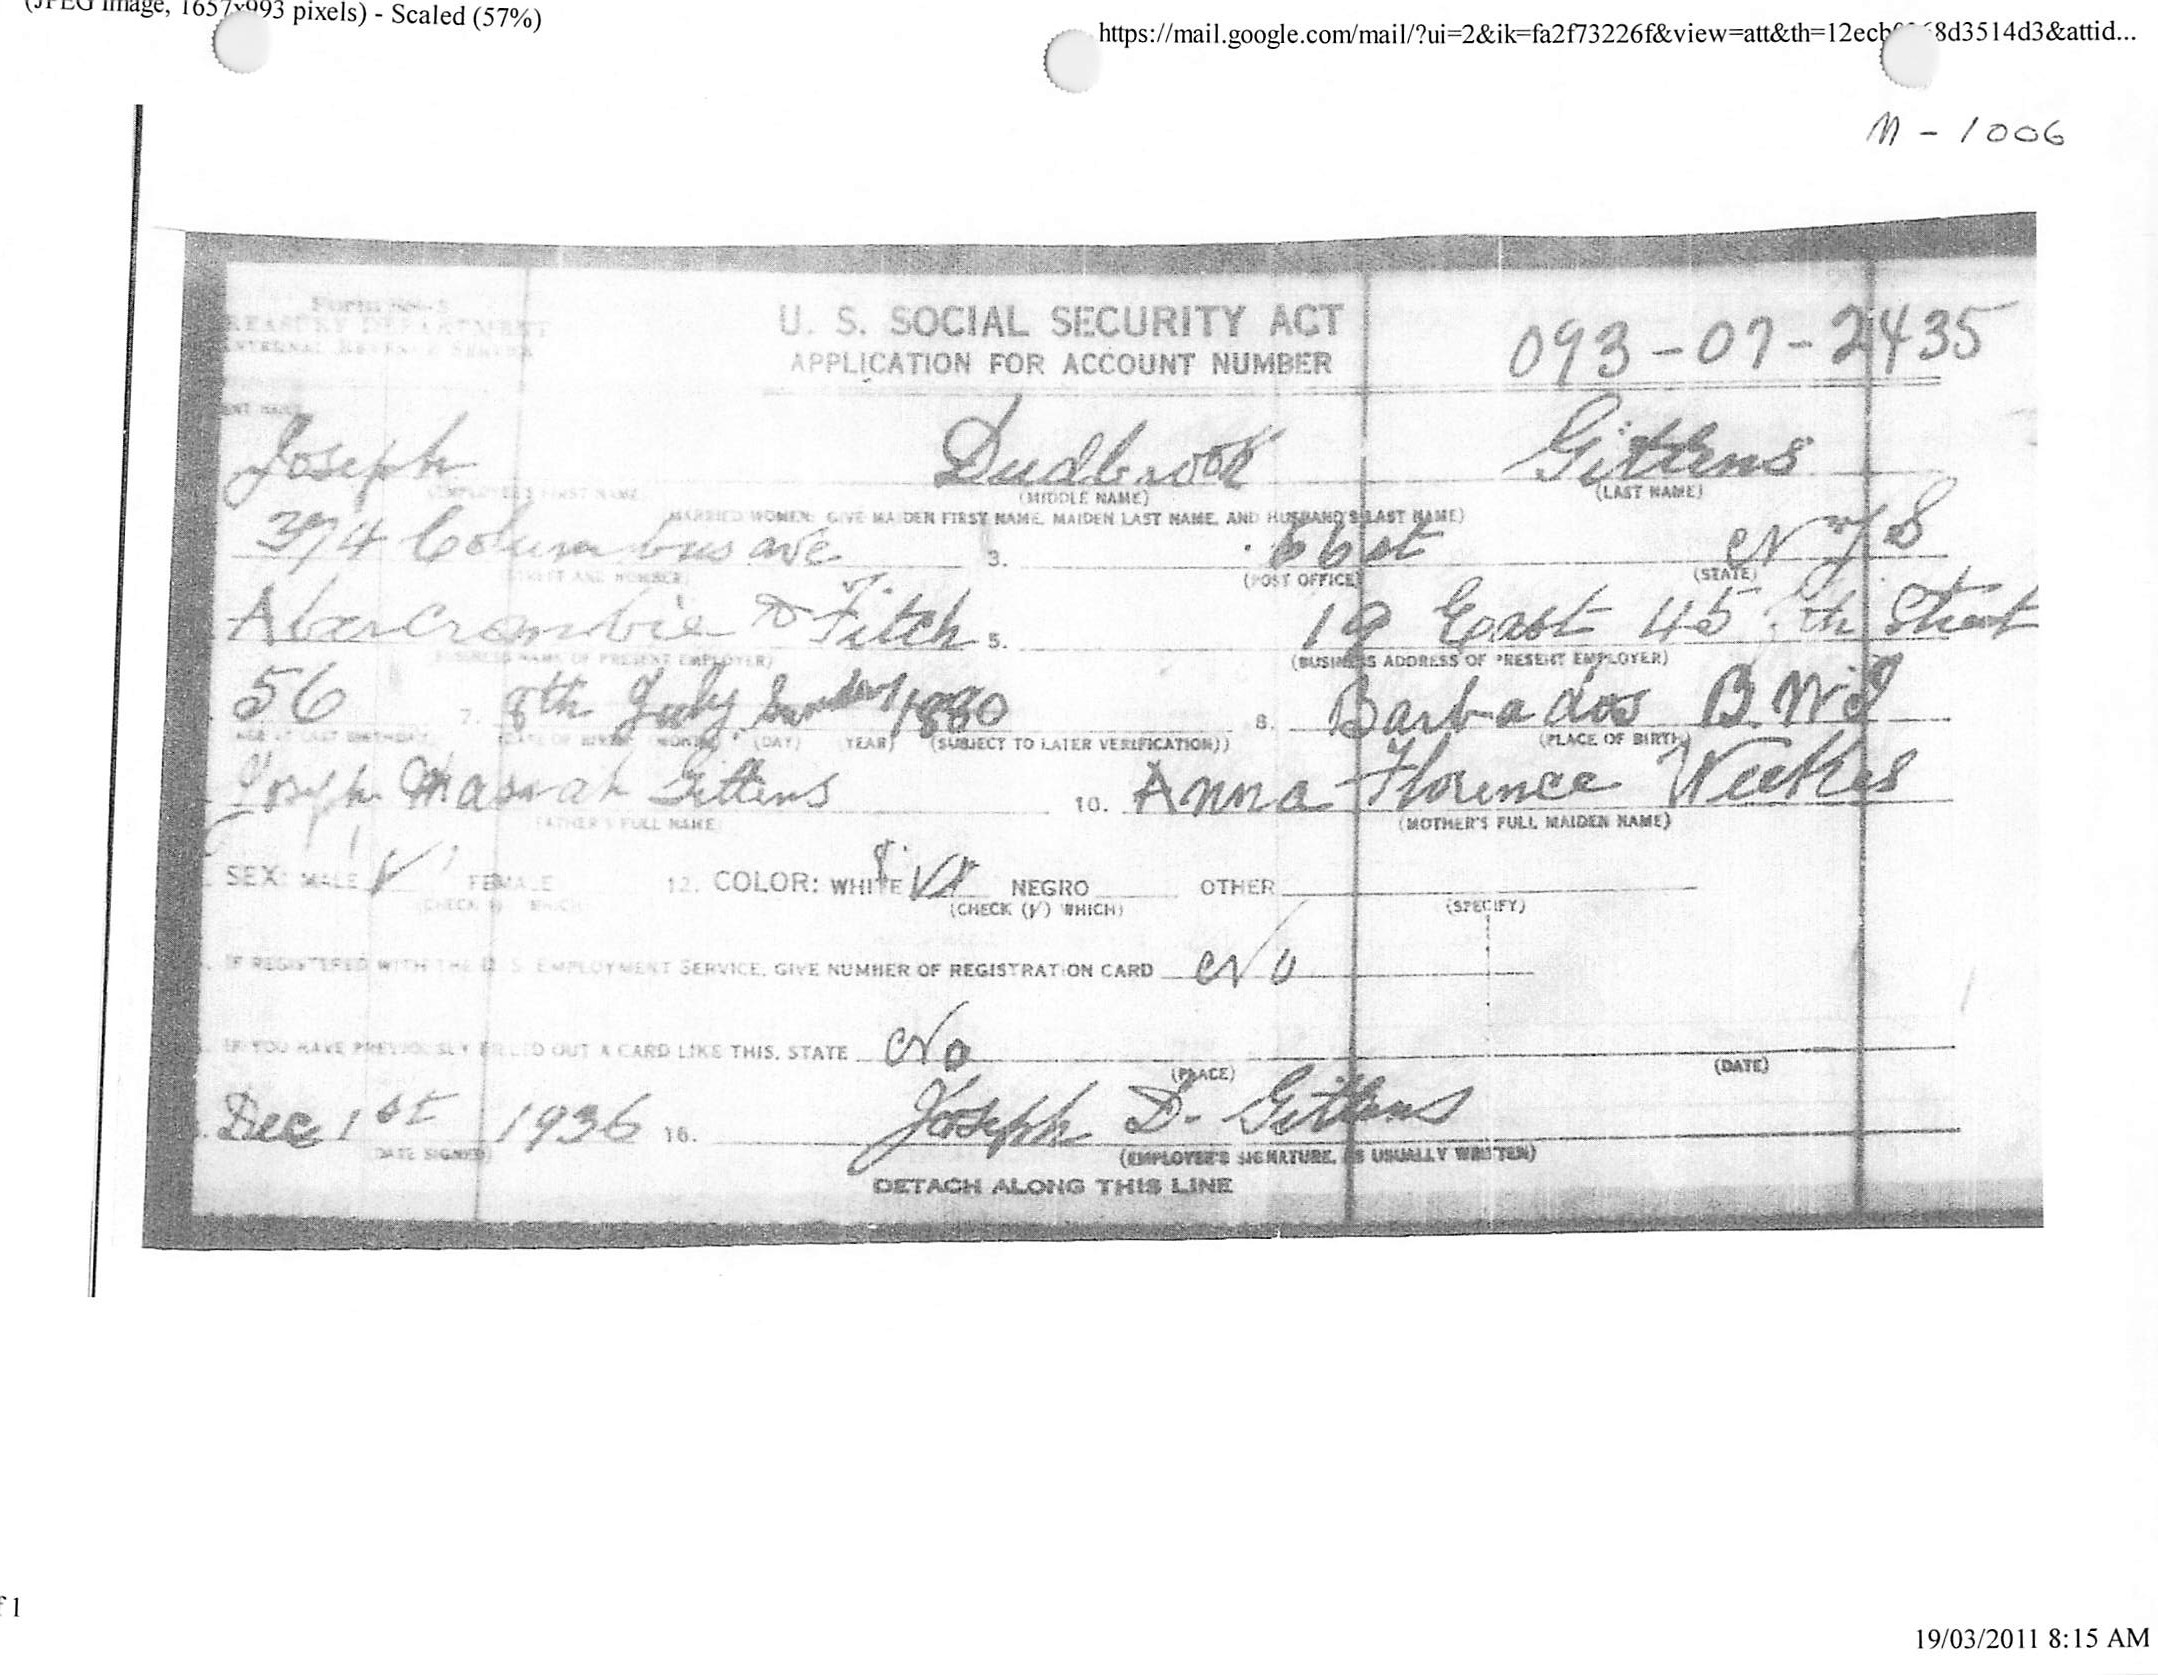 (JPEG Image, 1657x993 pixels) - Scaled (57%)
https://mail.google.com/mail/?ui=2&ik=fa2f73226f&view=att&th=12ecb 8d3514d3&attid...
M - 1006
Form SS-5
TREASURY DEPARTMENT
INTERNAL REVENUE SERVICE
U. S. SOCIAL SECURITY ACT
APPLICATION FOR ACCOUNT NUMBER
093-07-2435
Joseph Dudbrook Gittens
(EMPLOYEE'S FIRST NAME) (MIDDLE NAME) (LAST NAME)
(MARRIED WOMEN: GIVE MAIDEN FIRST NAME, MAIDEN LAST NAME, AND HUSBAND'S LAST NAME)
374 Columbus ave 3. 66 st
(STREET AND NUMBER) (POST OFFICE) (STATE)
Abercrombie & Fitch 5. 19 East 45 th Street
(BUSINESS NAME OF PRESENT EMPLOYER) (BUSINESS ADDRESS OF PRESENT EMPLOYER)
56 7. 8th July 1880 8. Barbados B.W.I
(AGE AT LAST BIRTHDAY) (DATE OF BIRTH: (MONTH) (DAY) (YEAR) (SUBJECT TO LATER VERIFICATION)) (PLACE OF BIRTH)
Joseph Gittens 10. Anna Florence Weekes
(FATHER'S FULL NAME) (MOTHER'S FULL MAIDEN NAME)
SEX: MALE V FEMALE 12. COLOR: WHITE NEGRO OTHER
(CHECK (V) WHICH) (CHECK (V) WHICH) (SPECIFY)
IF REGISTERED WITH THE U. S. EMPLOYMENT SERVICE, GIVE NUMBER OF REGISTRATION CARD No
IF YOU HAVE PREVIOUSLY FILLED OUT A CARD LIKE THIS, STATE No
(PLACE) (DATE)
Dec 1st 1936 16. Joseph D. Gittens
(DATE SIGNED) (EMPLOYEE'S SIGNATURE, AS USUALLY WRITTEN)
DETACH ALONG THIS LINE
f 1
19/03/2011 8:15 AM